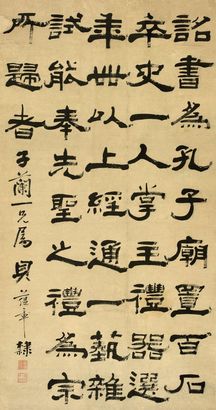 詔書為孔子廟置百石
卒史一人掌主禮器選
年卌以上經通一藝雜
試能奉先聖之禮為宗
所歸者
子蘭一兄屬 貝 隸